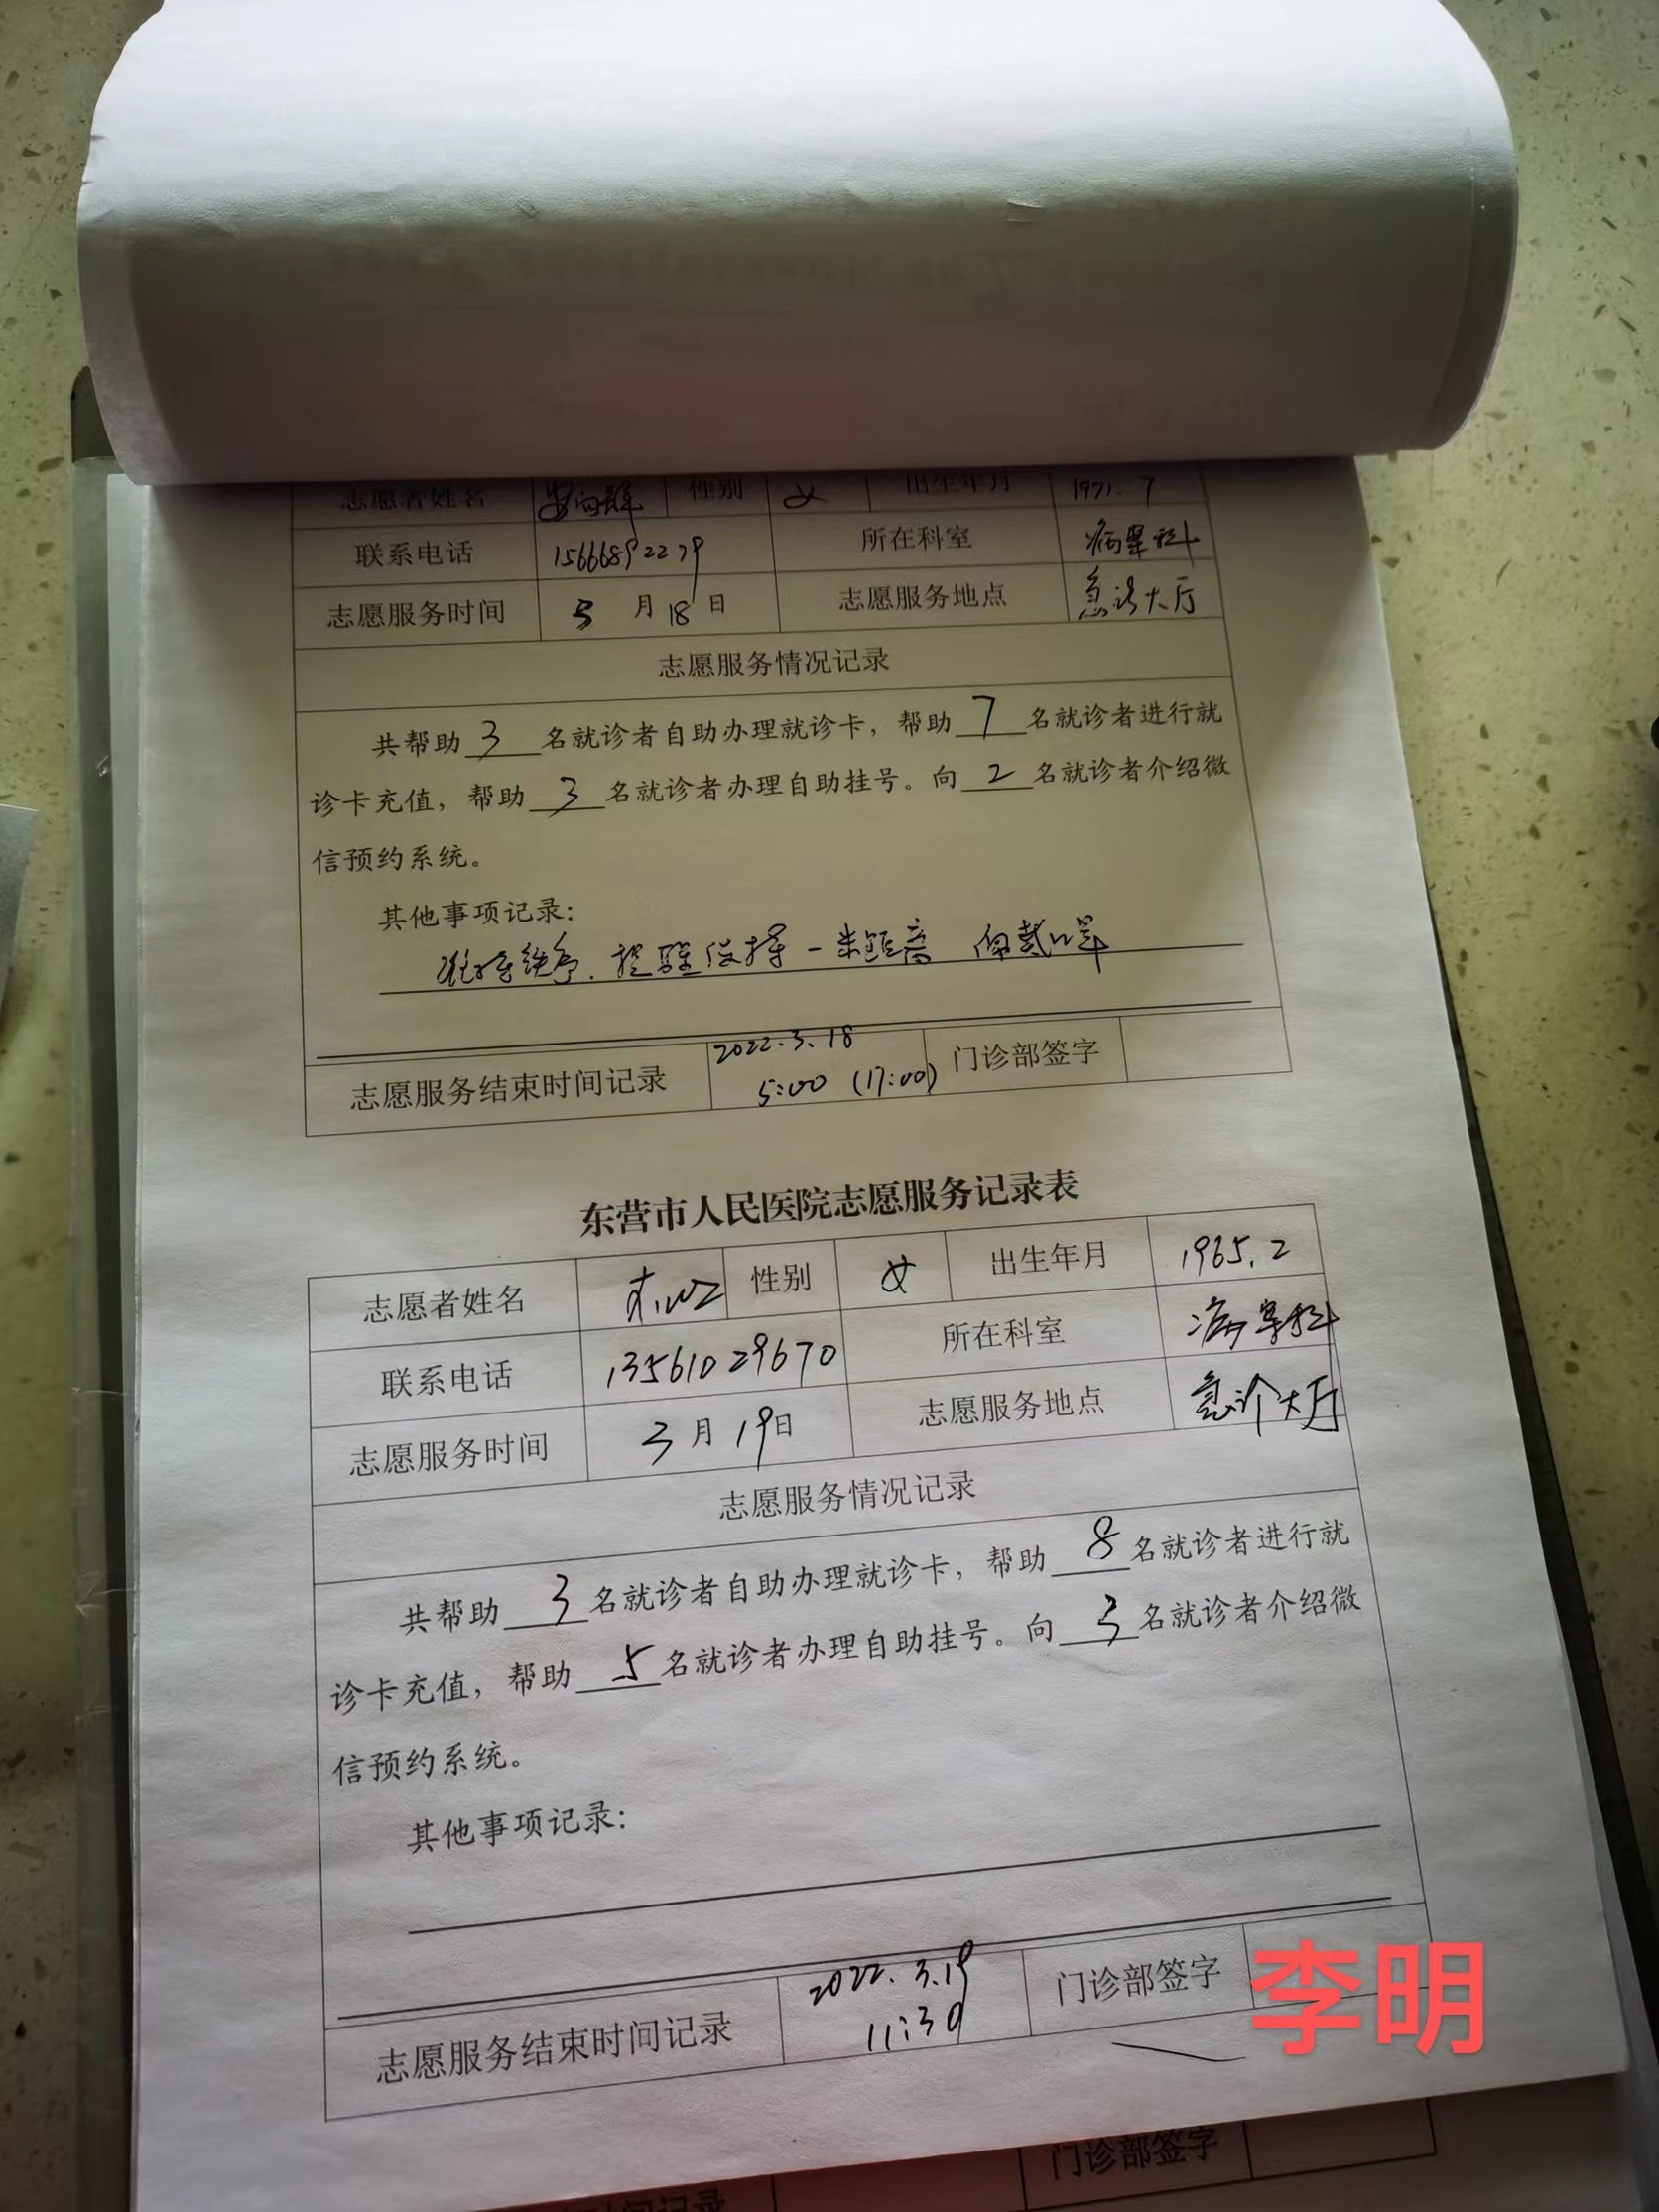 志愿者姓名 性别 女 出生年月 1971.7
联系电话 15666892279 所在科室 病案科
志愿服务时间 3月18日 志愿服务地点 急诊大厅
志愿服务情况记录
共帮助3名就诊者自助办理就诊卡，帮助7名就诊者进行就
诊卡充值，帮助3名就诊者办理自助挂号。向2名就诊者介绍微
信预约系统。
其他事项记录：
维持秩序.提醒保持一米距离 佩戴口罩
2022.3.18
志愿服务结束时间记录 5:00 (17:00) 门诊部签字
东营市人民医院志愿服务记录表
志愿者姓名 性别 女 出生年月 1965.2
联系电话 13561029670 所在科室 病案科
志愿服务时间 3月19日 志愿服务地点 急诊大厅
志愿服务情况记录
共帮助3名就诊者自助办理就诊卡，帮助8名就诊者进行就
诊卡充值，帮助5名就诊者办理自助挂号。向3名就诊者介绍微
信预约系统。
其他事项记录：
2022.3.19
志愿服务结束时间记录 11:30 门诊部签字 李明
门诊部签字
时间记录